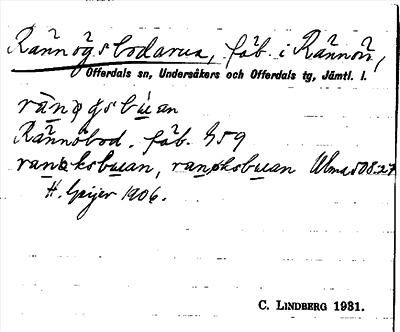 Rännögsbodarna, fäb. i Rännön,
Offerdals sn, Undersåkers och Offerdals tg, Jämtl. l.
Rännöbod. fäb. G59
ranøksbuan, ranøksbuan Ulma 508:27
H. Geijer 1906.
C. LINDBERG 1931.